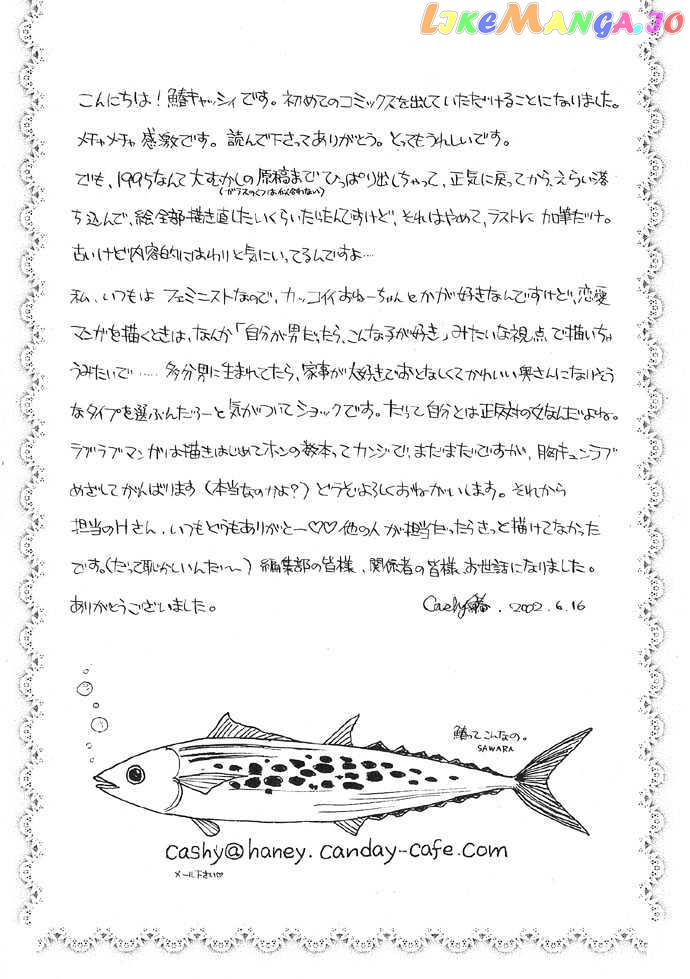 LIKEMANGA.IO
こんにちは!鰆キャッシィです。初めてのコミックスを出していただけることになりました。
メチャメチャ感激です。読んで下さってありがとう。とってもうれしいです。
でも、1995なんて大むかしの原稿までひっぱり出しちゃって、正気に戻ってから、えらい落
(ガラスのくつは似合わない)
ち込んで、絵全部描き直したいくらいだったんですけど、それはやめて、ラストに加筆だけ。
古いけど内容的にはわりと気にいってるんですよ…
私、いつもは フェミニストなので、カッコイイおねーちゃんとかが好きなんですけど、恋愛
マンガを描くときは、なんか「自分が男だったら、こんな子が好き」みたいな視点で描いちゃ
うみたいで……多分男に生まれてたら、家事が大好きでおとなしくてかわいい奥さんになりそう
なタイプを選ぶんだろーと気がついてショックです。だって自分とは正反対の女なんだよね。
ラブラブマンガは描きはじめてホンの数本ってカンジで、まだまだですが、胸キュンラブ
めざしてがんばります(本当なのかよ?)どうぞよろしくおねがいします。それから
担当のHさん、いつもどうもありがとー♡♡他の人が担当だったらきっと描けてなかった
です。(だって恥かしいんだい〜)編集部の皆様、関係者の皆様、お世話になりました。
ありがとうございました。
Cashy鰆.2002.6.16
鰆ってこんなの。
SAWARA
cashy@haney.canday-cafe.com
メール下さい♡